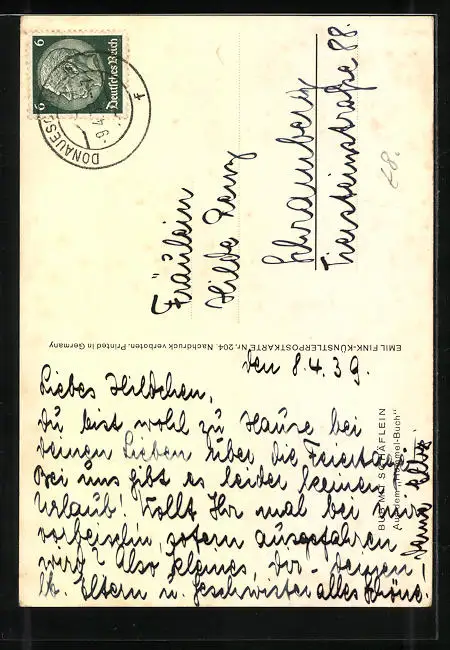 den 8.4.39.
Liebes Hildchen,
Du bist wohl zu Hause bei
deinen Lieben über die Feiertage
Bei uns gibt es leider keinen
Urlaub! Wollt Ihr mal bei mir
vorbeischn, sofern ausgefahren
wird? Also kleines, Dir - deinen
lb. Eltern u. Geschwister alles Schöne!
BUB MIT SCHÄFLEIN
Aus dem „Hummel-Buch"
EMIL FINK-KÜNSTLERPOSTKARTE Nr. 204. Nachdruck verboten. Printed in Germany
Fräulein
Hilde
Schramberg
Tiersteinstraße 88.
Deutsches Reich
6
6
DONAUESC
-9.4.
f